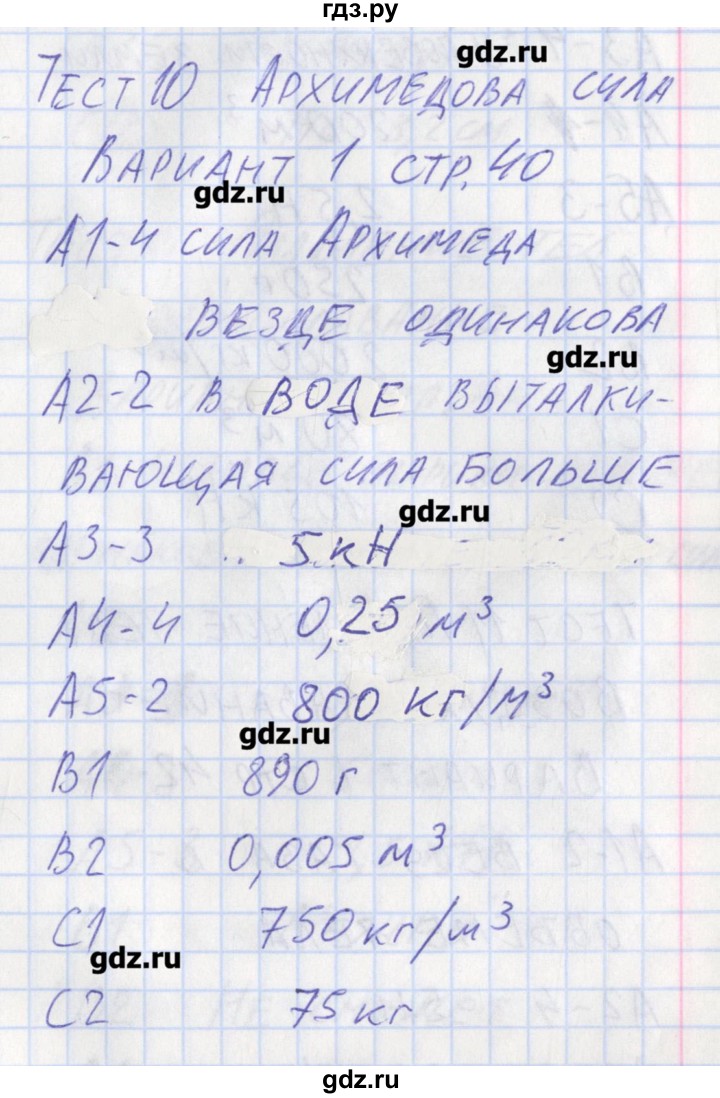 гдз.ру
gdz.ru
Тест 10 Архимедова сила
Вариант 1 стр. 40
gdz.ru
А1-4 сила Архимеда
везде одинакова
gdz.ru
А2-2 в воде выталки-
вающая сила больше
gdz.ru
А3-3 5 кН
А4-4 0,25 м³
А5-2 800 кг/м³
gdz.ru
В1 890 г
В2 0,005 м³
С1 750 кг/м³
gdz.ru
С2 75 кг
gdz.ru